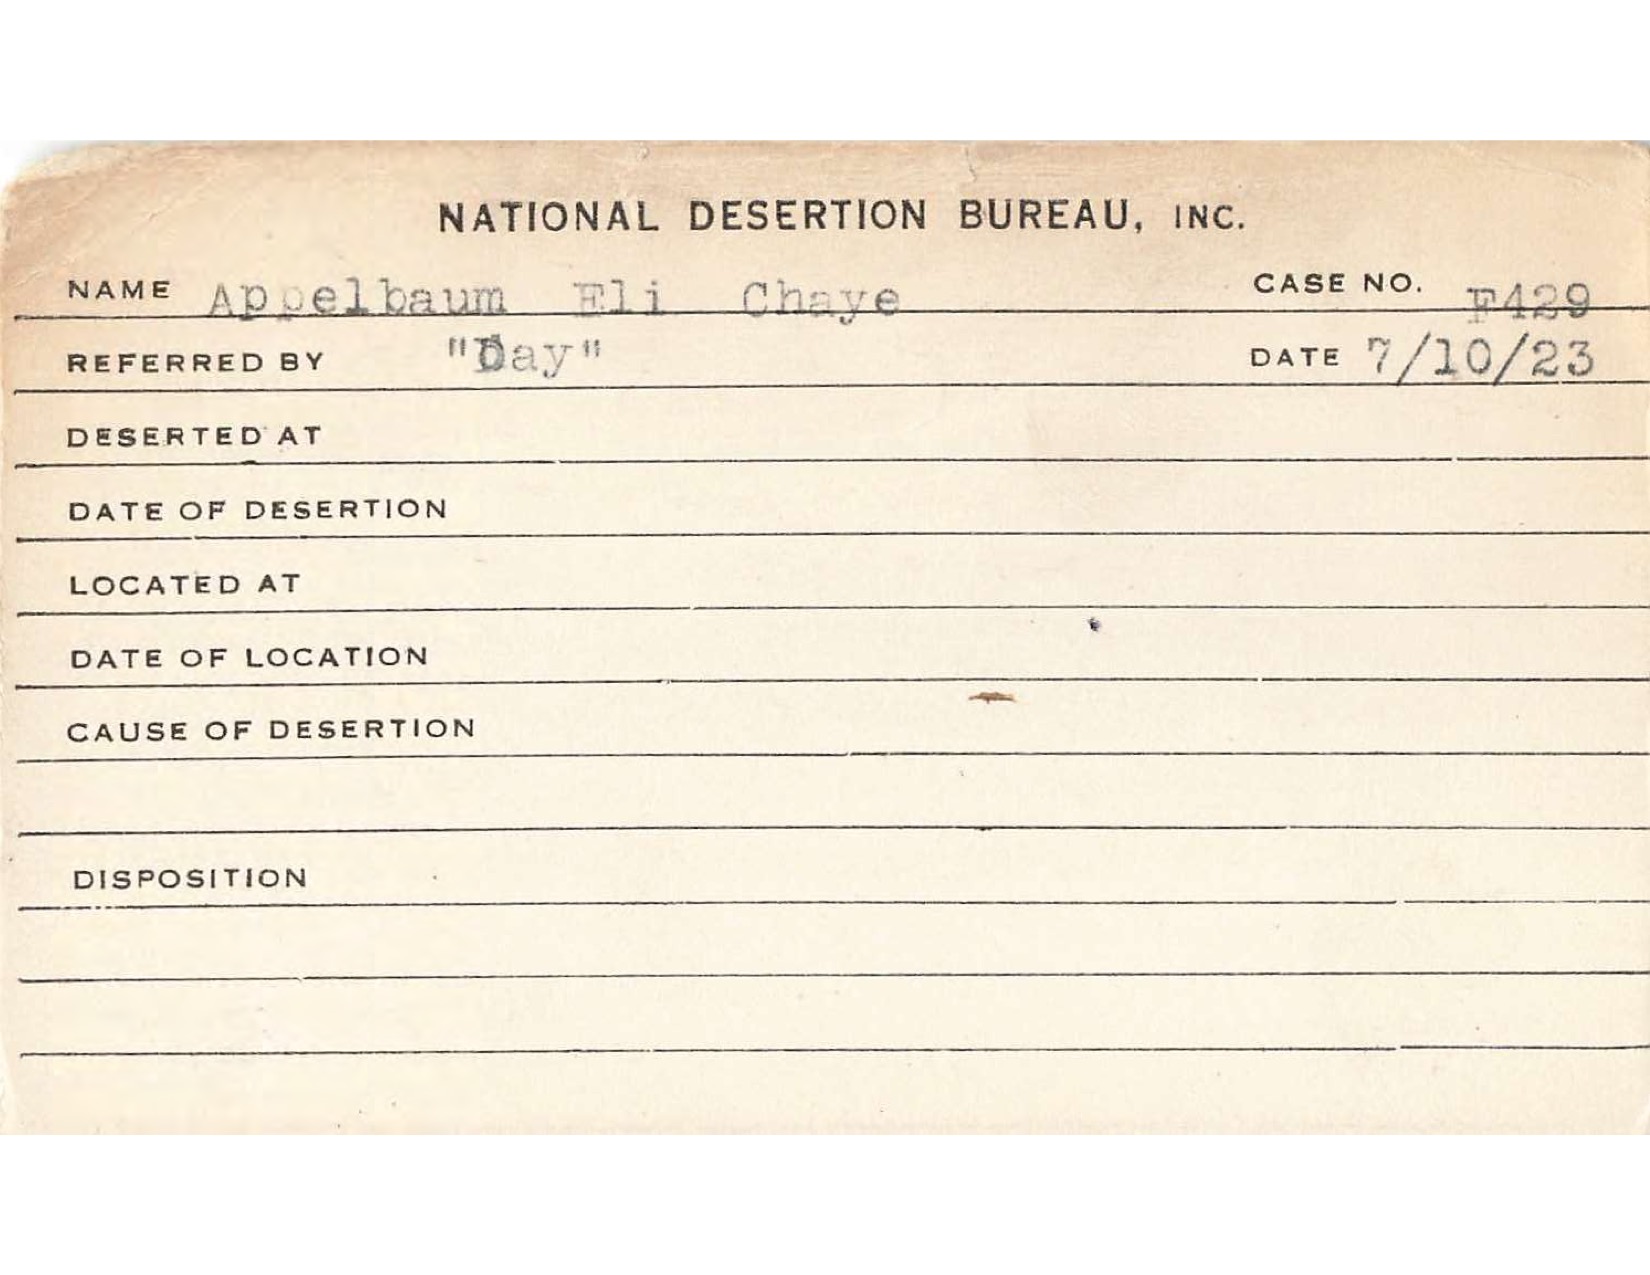 NATIONAL DESERTION BUREAU, INC.
NAME Appelbaum Eli Chaye CASE NO. F429
REFERRED BY "Day" DATE 7/10/23
DESERTED AT
DATE OF DESERTION
LOCATED AT
DATE OF LOCATION
CAUSE OF DESERTION
DISPOSITION